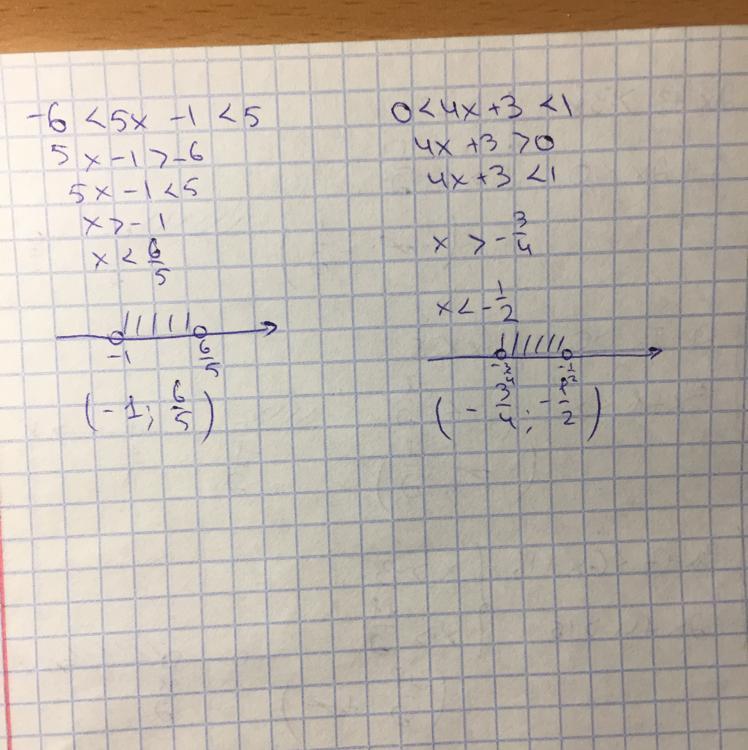 -6 < 5x - 1 < 5
5x - 1 > -6
5x - 1 < 5
x > -1
x < 6/5
-1 6/5
(-1; 6/5)
0 < 4x + 3 < 1
4x + 3 > 0
4x + 3 < 1
x > -3/4
x < -1/2
-3/4 -1/2
(-3/4; -1/2)